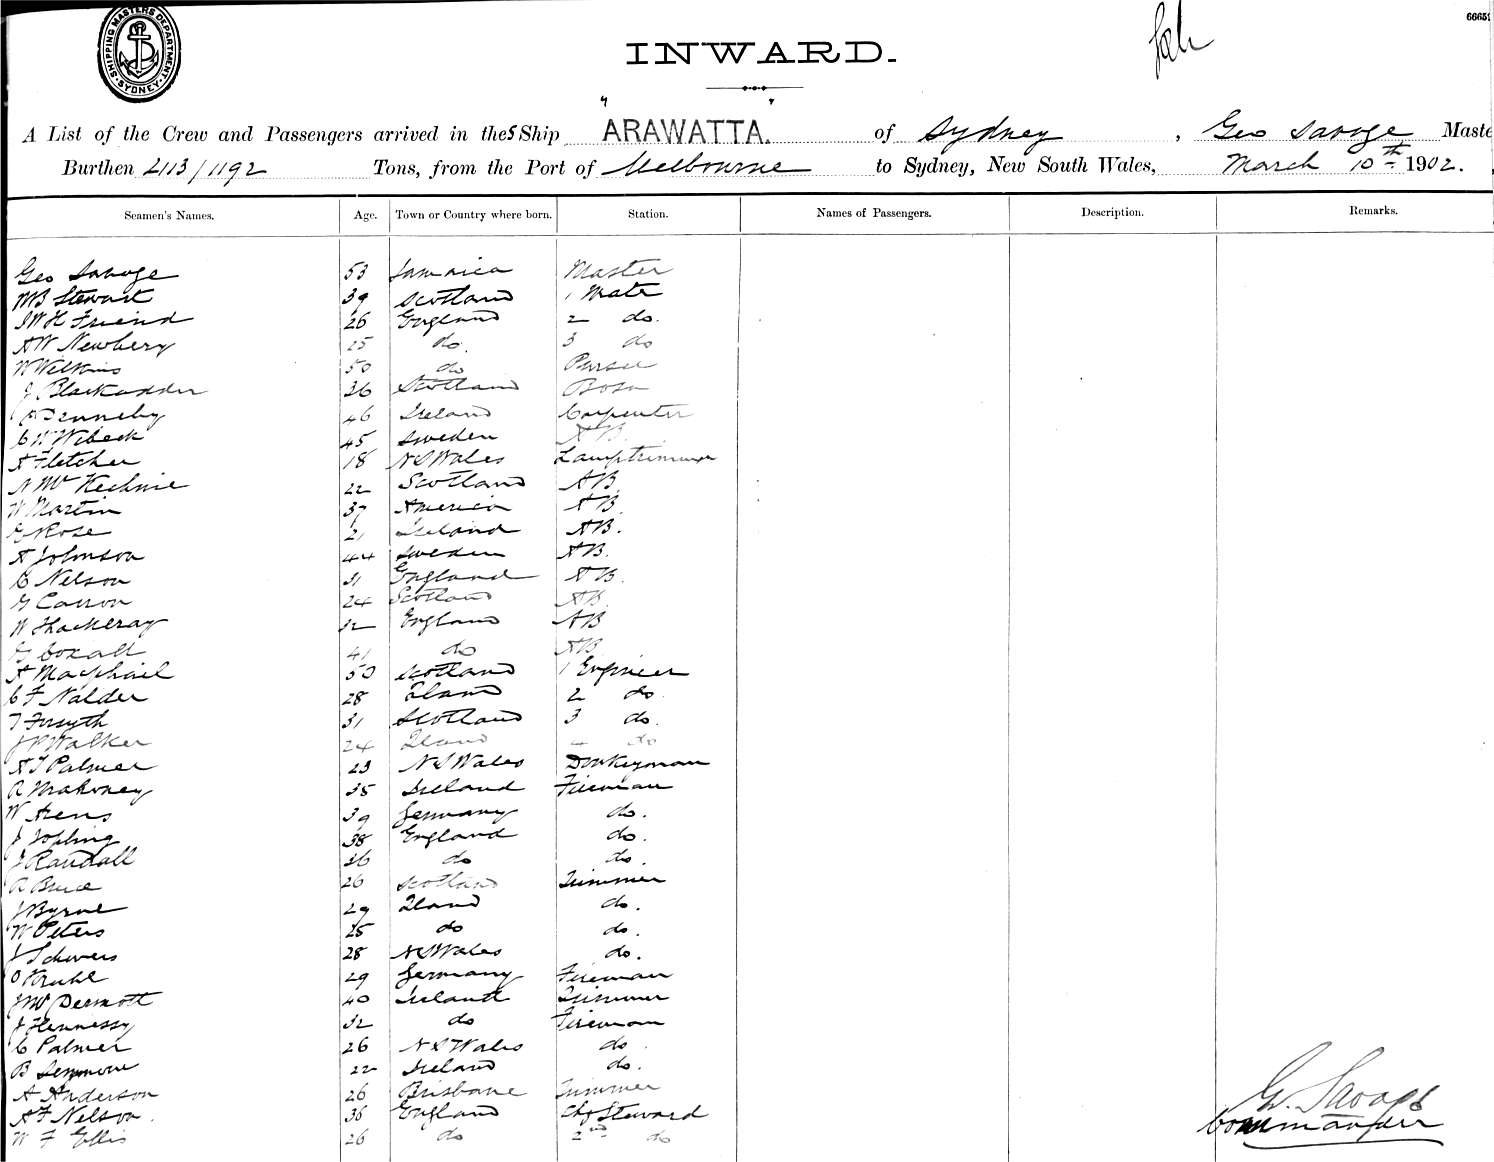 SHIPPING MASTERS DEPARTMENT SYDNEY
66651
INWARD.
A List of the Crew and Passengers arrived in the S Ship "ARAWATTA." of Sydney, Geo Savage Maste
Burthen 2113/1192 Tons, from the Port of Melbourne to Sydney, New South Wales, March 10th 1902.
Seamen's Names. Age. Town or Country where born. Station. Names of Passengers. Description. Remarks.
Geo Savage 53 Jamaica Master
MB Stewart 39 Scotland 1 Mate
JWH Friend 26 England 2 do.
AW Newbery 25 do. 3 do
W Wilkins 50 do Purser
J Blackadder 36 Scotland Bosn
Dennehy 46 Ireland Carpenter
C W Wibeck 45 Sweden AB.
A Fletcher 18 N S Wales Lamptrimmer
N McKechnie 22 Scotland AB
W Martin 37 America AB.
Rose 21 Ireland AB.
A Johnson 44 Sweden AB.
C Nelson 31 England AB.
G Carron 24 Scotland AB
W Thackeray 32 England AB
G Coxall 41 do AB
A Macphail 50 Scotland 1 Engineer
C F Nalder 28 Qland 2 do.
T Forsyth 31 Scotland 3 do.
J P Walker 24 Qland 4 do
A J Palmer 23 N S Wales Donkeyman
R Mahoney 35 Ireland Fireman
W Arens 39 Germany do.
J Jopling 38 England do.
J Randall 36 do do.
R Bruce 26 Scotland Trimmer
J Byrne 29 Qland do.
W Peters 25 do do.
J Schwers 28 N S Wales do.
O Kruhl 29 Germany Fireman
J McDermott 40 Ireland Trimmer
J Hennessy 32 do Fireman
C Palmer 26 N S Wales do.
B 22 Ireland do.
A Anderson 26 Brisbane Trimmer
A F Nelson. 36 England Chf Steward
W F Ellis 26 do 2nd do
G. Savage
Commander